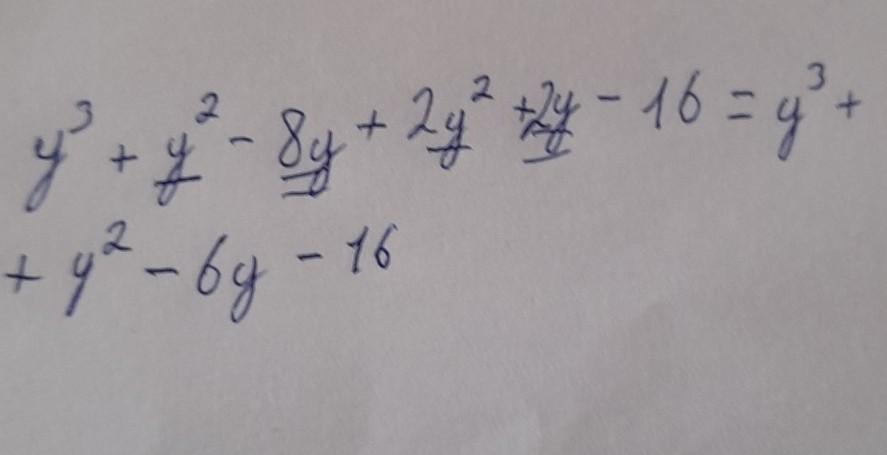 y³ + y² - 8y + 2y² + 2y - 16 = y³ +
+ y² - 6y - 16